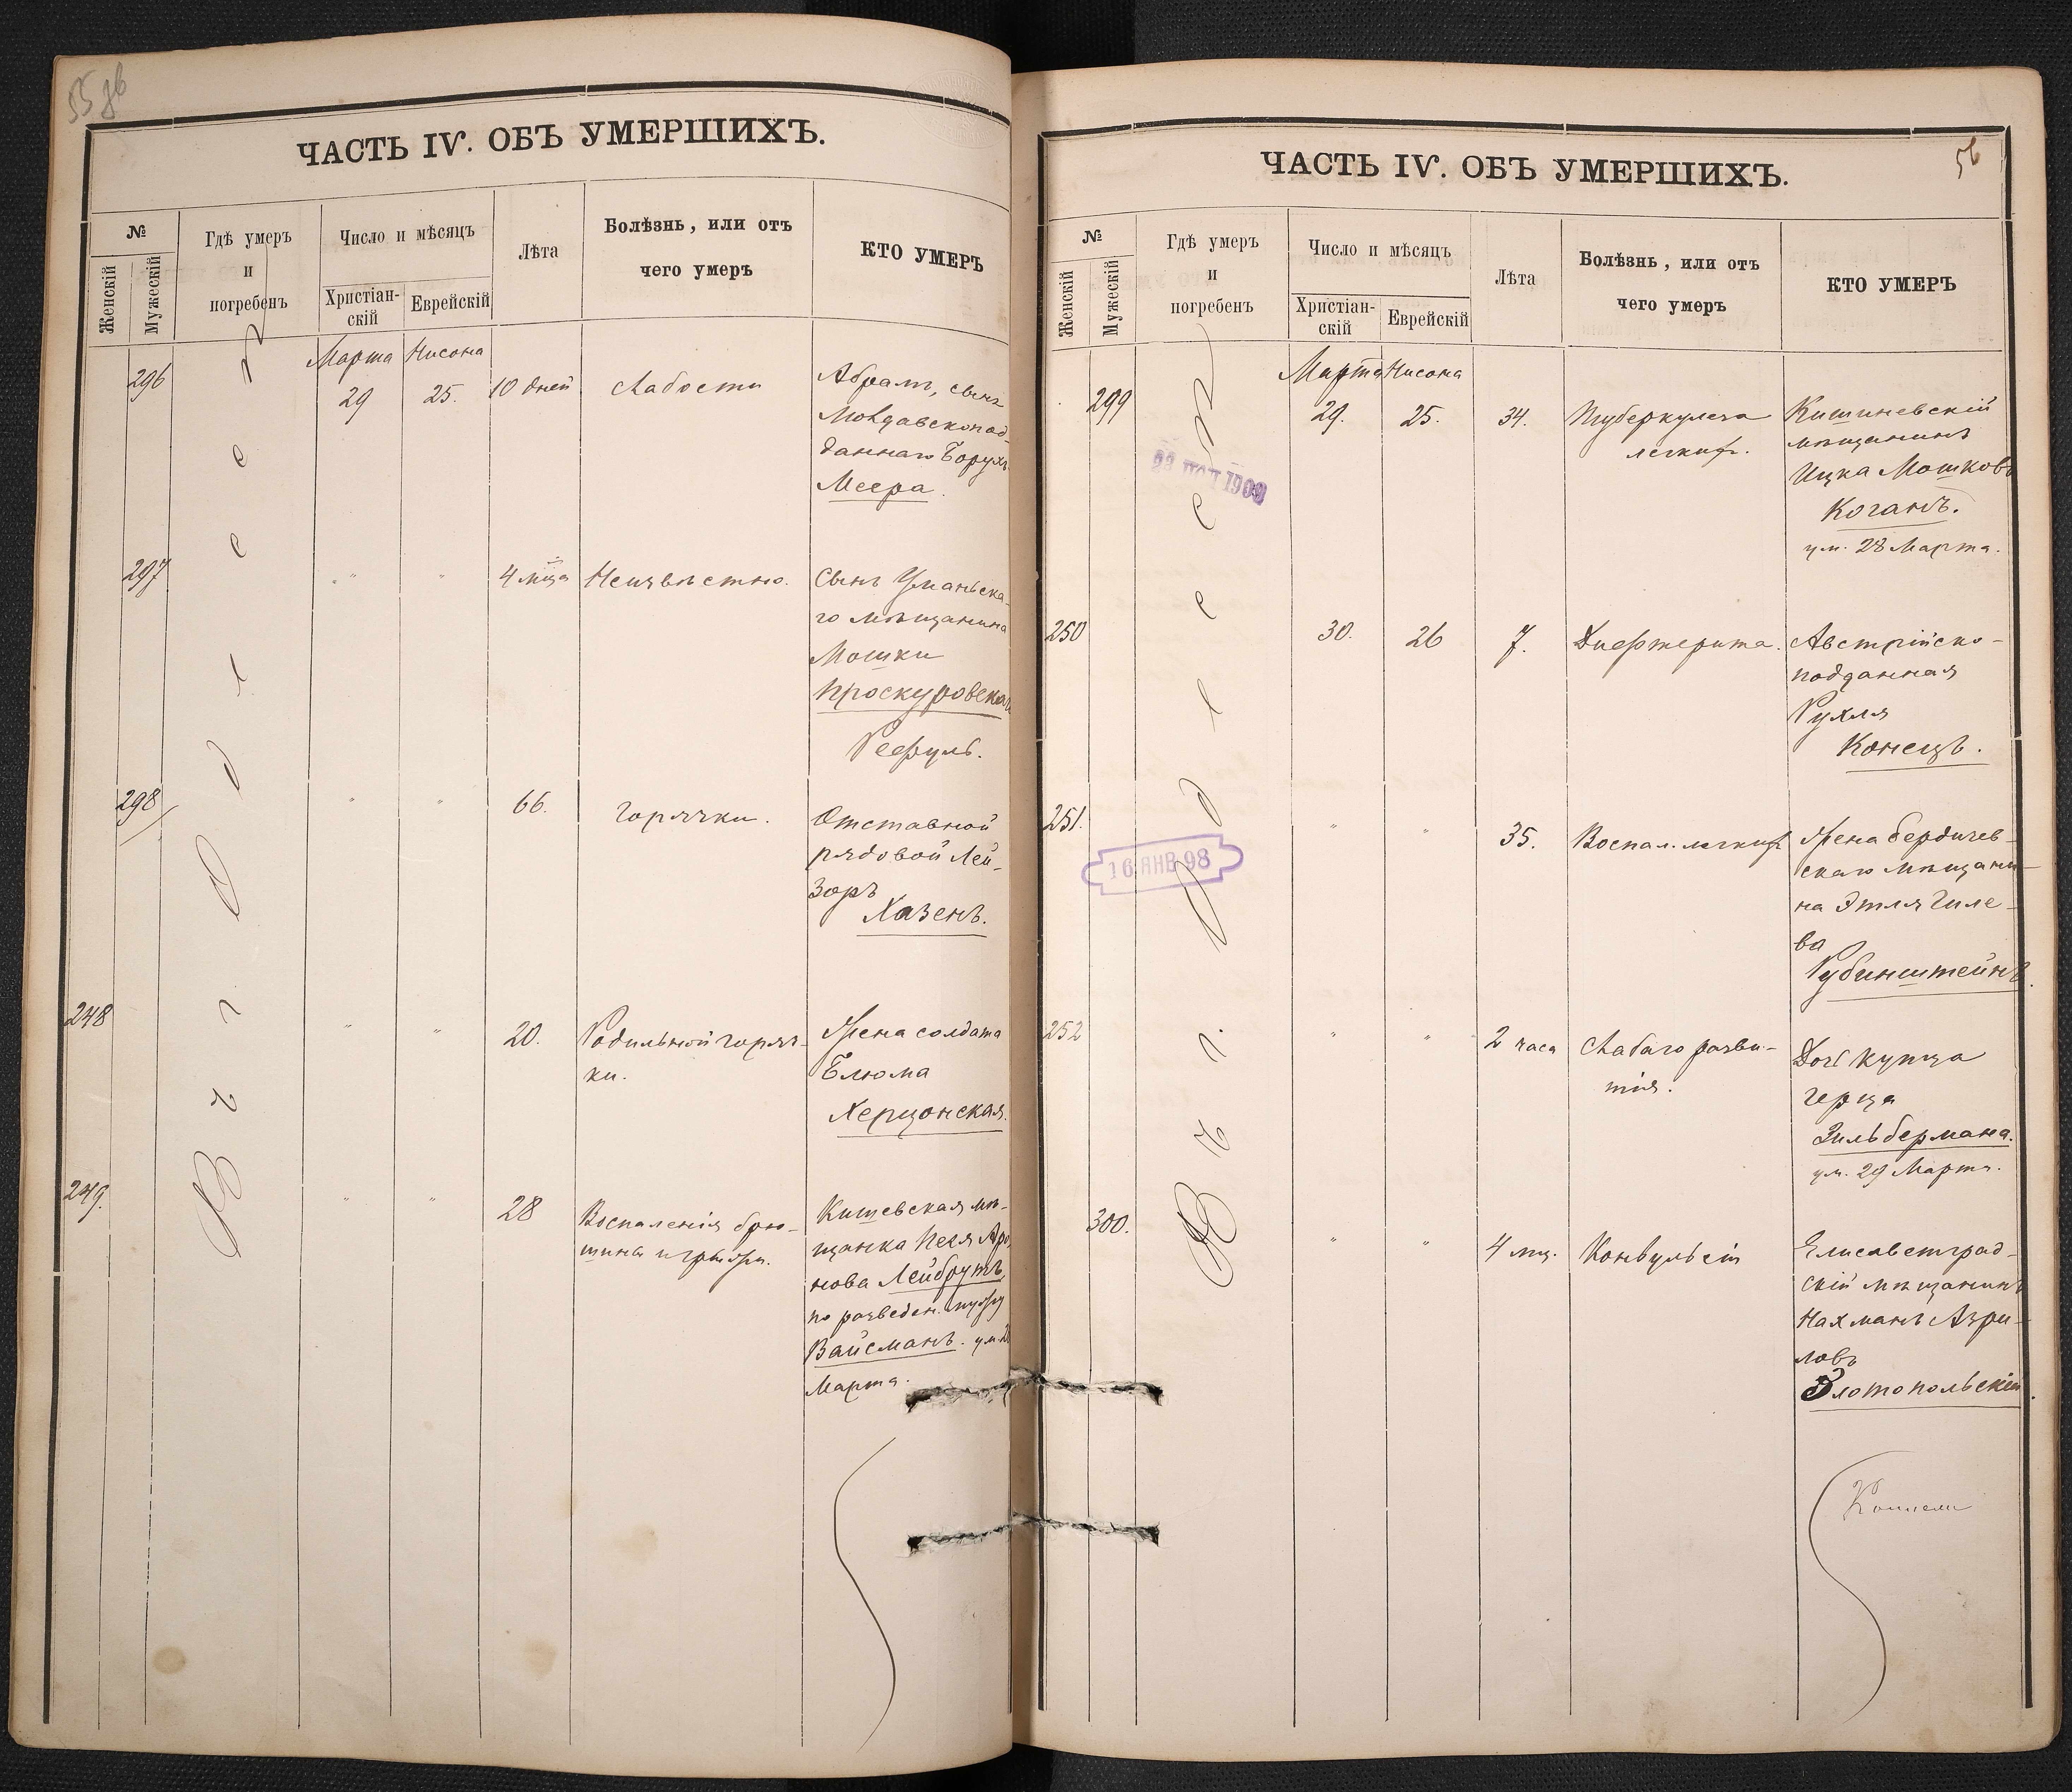 55 об
ЧАСТЬ IV. ОБЪ УМЕРШИХЪ.
№
Женскій
Мужескій
Гдѣ умеръ
и
погребенъ
Число и мѣсяцъ
Христіан-
скій
Еврейскій
Лѣта
Болѣзнь, или отъ
чего умеръ
КТО УМЕРЪ
Въ г. Одессѣ
Марта Нисона
296 29 25. 10 дней Слабости Абрамъ, сынъ
Молдавскопод-
даннаго Борухъ
Меера.
297 " " 4 м-ца Неизвѣстно. Сынъ Уманьска-
го мѣщанина
Мошки
Проскуровскаго
Рефуль.
298 " " 66. Горячки. Отставной
рядовой Лей-
зоръ
Хазенъ.
248 " " 20. Родильной горяч- Жена солдата
ки. Блюма
Херцонская.
249. " " 28 Воспаленія брю- Кишевская мѣ-
шины и грыжи. щанка Песя Аро-
нова Лейбрутъ,
по разведен. мужу
Вайсманъ. ум. 28
Марта.
56
ЧАСТЬ IV. ОБЪ УМЕРШИХЪ.
№
Женскій
Мужескій
Гдѣ умеръ
и
погребенъ
Число и мѣсяцъ
Христіан-
скій
Еврейскій
Лѣта
Болѣзнь, или отъ
чего умеръ
КТО УМЕРЪ
Въ г. Одессѣ
Марта Нисона
299 29. 25. 34. Туберкулеза Кишиневскій
легкихъ. мѣщанинъ
Ицка Мошковъ
Коганъ.
ум. 28 Марта.
1909
250 30. 26 7. Дифтерита. Австрійско-
подданная
Рухля
Конецъ.
251. " " 35. Воспал. легкихъ Жена бердичев-
скаго мѣщани-
на Этля Гиле-
ва
Рубинштейнъ.
16 ЯНВ 98
252 " " 2 часа Слабаго разви- Дочь купца
тія. Герца
Зильбермана.
ум. 29 Марта.
300. " " 4 мц. Конвульсій Елисаветград-
скій мѣщанинъ
Нахманъ Азри-
ловъ
Златопольскій.